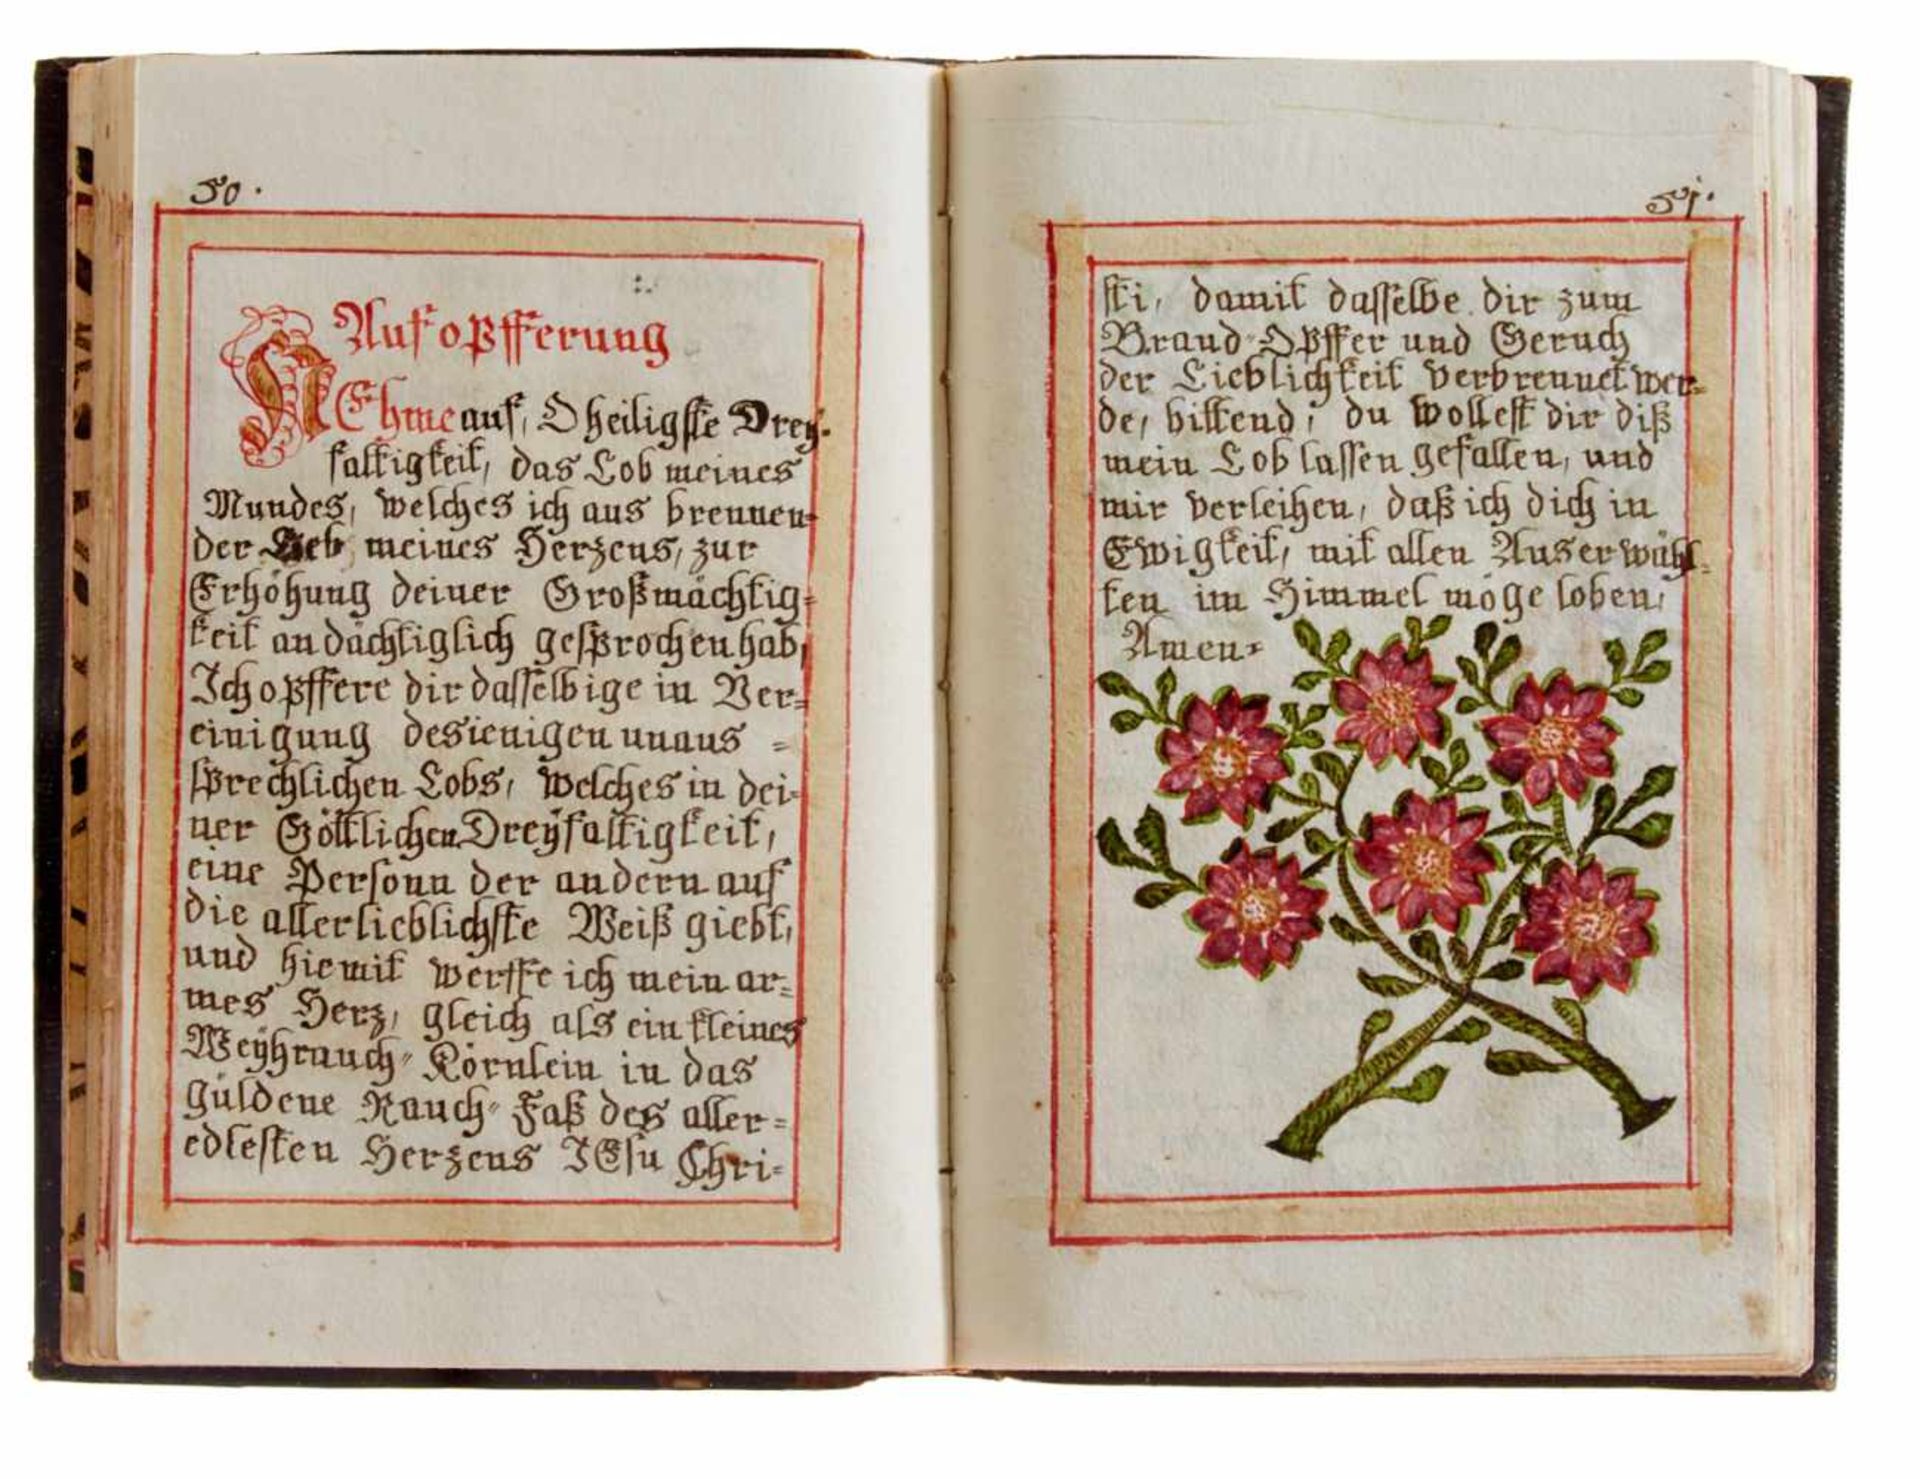 50.
Aufopfferung
NEhme auf, O heiligste Drey-
faltigkeit, das Lob meines
Mundes, welches ich aus brennen-
der Lieb meines Herzens, zur
Erhöhung deiner Großmächtig-
keit andächtiglich gesprochen hab,
Ich opffere dir dasselbige in Ver-
einigung desienigen unaus =
sprechlichen Lobs, welches in dei-
ner Göttlichen Dreyfaltigkeit,
eine Persohn der andern auf
die allerlieblichste Weiß giebt,
und hiemit werffe ich mein ar=
mes Herz, gleich als ein kleines
Weyhrauch=Körnlein in das
güldene Rauch=Faß des aller=
edlesten Herzens JEsu Chri=
51.
sti, damit dasselbe dir zum
Brand=Opffer und Geruch
der Lieblichkeit verbrennet wer-
de, bittend, du wollest dir diß
mein Lob lassen gefallen, und
mir verleihen, daß ich dich in
Ewigkeit, mit allen Auserwähl-
ten im Himmel möge loben,
Amen=